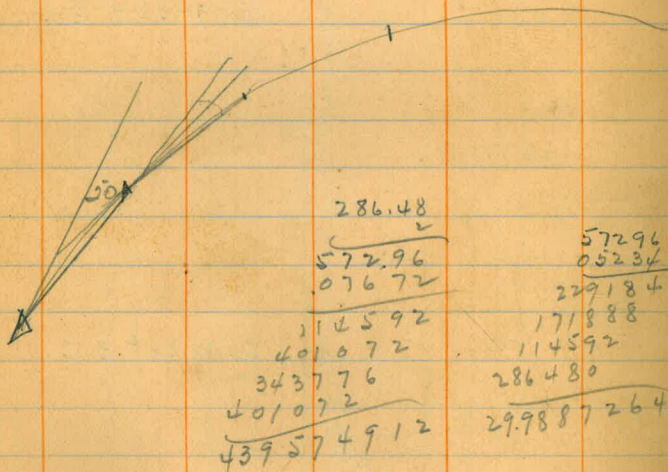 50
286.48
2
572.96
07672
114592
401072
343776
401072
439574912
57296
05234
229184
171888
114592
286480
29.9887264